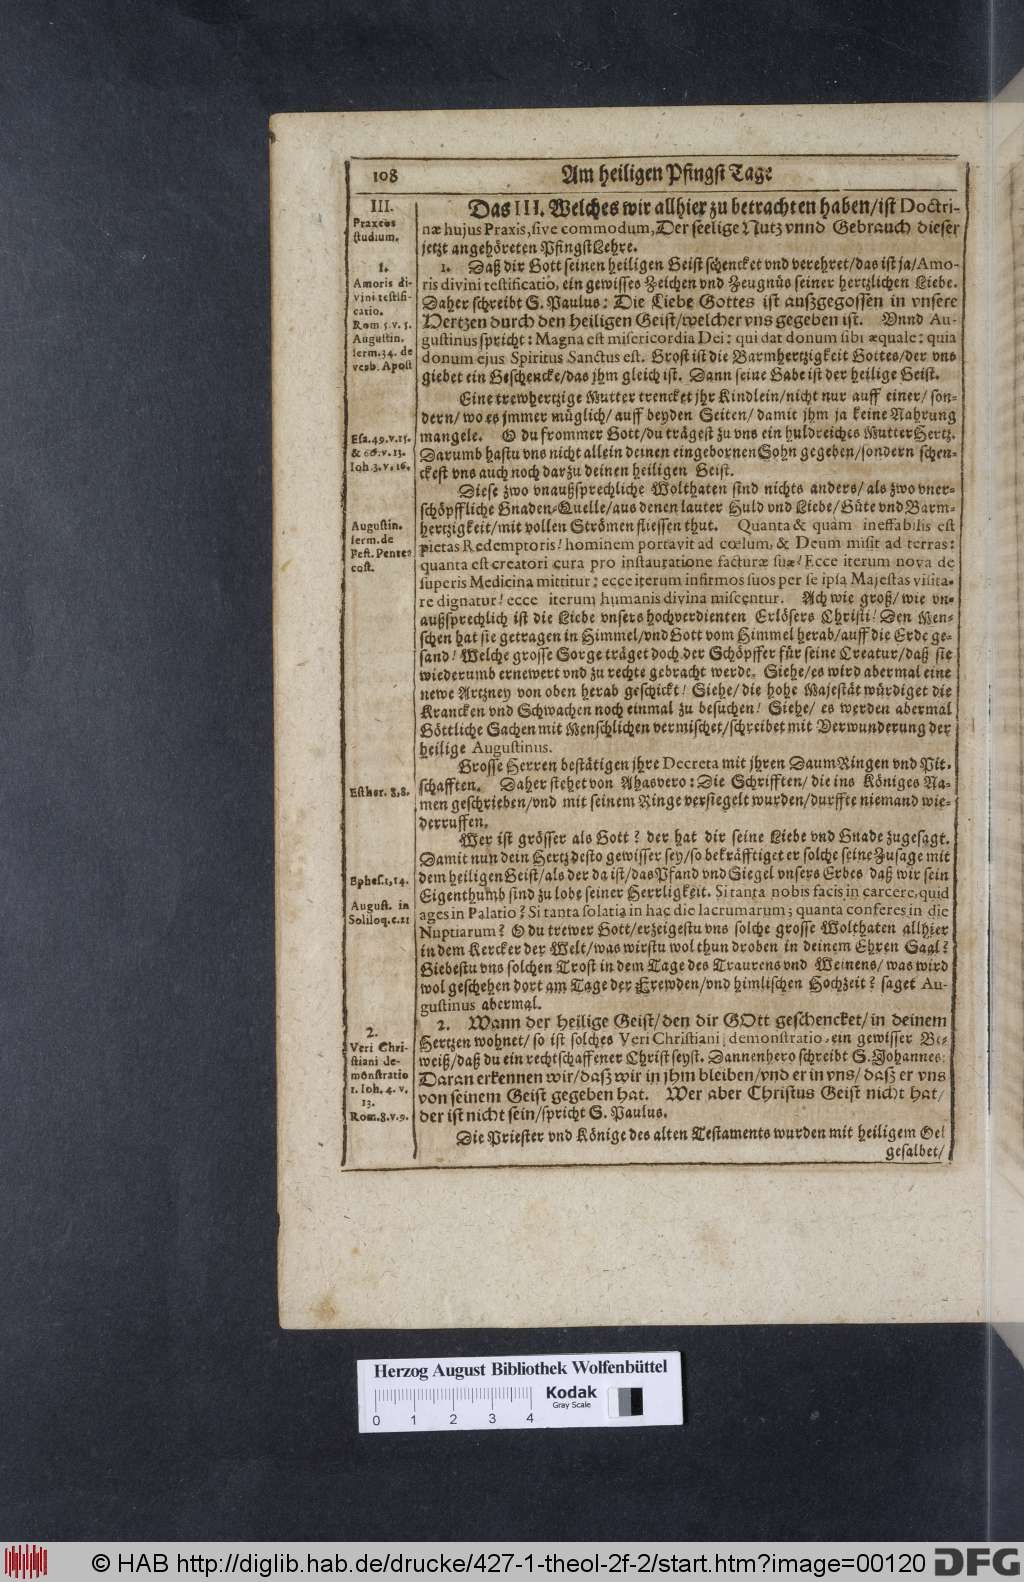 108
Am heiligen Pfingst Tage
III.
Praxeos
studium.
1.
Amoris di-
vini testifi-
catio.
Rom 5. v. 5.
Augustin.
serm. 34. de
verb. Apost
Esa. 49. v. 15.
& 66. v. 13.
Ioh. 3. v. 16.
Augustin.
serm. de
Fest. Pente-
cost.
Esther. 8, 8.
Ephes. 1, 14.
August. in
Soliloq. c. 21
2.
Veri Chri-
stiani de-
monstratio
1. Ioh. 4. v.
13.
Rom. 8. v. 9.
Das III. Welches wir allhier zu betrachten haben/ist Doctri-
næ hujus Praxis, sive commodum, Der seelige Nutz vnnd Gebrauch dieser
jetzt angehöreten PfingstLehre.
1. Daß dir Gott seinen heiligen Geist schencket vnd verehret/das ist ja/Amo-
ris divini testificatio, ein gewisses Zeichen vnd Zeugnüs seiner hertzlichen Liebe.
Daher schreibt S. Paulus: Die Liebe Gottes ist außgegossen in vnsere
Hertzen durch den heiligen Geist/welcher vns gegeben ist. Vnnd Au-
gustinus spricht: Magna est misericordia Dei: qui dat donum sibi æquale: quia
donum ejus Spiritus Sanctus est. Grost ist die Barmhertzigkeit Gottes/der vns
giebet ein Geschencke/das jhm gleich ist. Dann seine Gabe ist der heilige Geist.
Eine trewhertzige Mutter trencket jhr Kindlein/nicht nur auff einer/ son-
dern/ wo es jmmer müglich/ auff beyden Seiten/ damit jhm ja keine Nahrung
mangele. O du frommer Gott/du trägest zu vns ein huldreiches MutterHertz.
Darumb hastu vns nicht allein deinen eingebornen Sohn gegeben/sondern schen-
ckest vns auch noch darzu deinen heiligen Geist.
Diese zwo vnaußsprechliche Wolthaten sind nichts anders/ als zwo vner-
schöpffliche Gnaden-Quelle/aus denen lauter Huld vnd Liebe/Güte vnd Barm-
hertzigkeit/mit vollen Strömen fliessen thut. Quanta & quàm ineffabilis est
pietas Redemptoris! hominem portavit ad cœlum, & Deum misit ad terras:
quanta est creatori cura pro instauratione facturæ suæ! Ecce iterum nova de
superis Medicina mittitur: ecce iterum infirmos suos per se ipsa Majestas visita-
re dignatur! ecce iterum humanis divina miscentur. Ach wie groß/ wie vn-
außsprechlich ist die Liebe vnsers hochverdienten Erlösers Christi! Den Men-
schen hat sie getragen in Himmel/vnd Gott vom Himmel herab/auff die Erde ge-
sand! Welche grosse Sorge träget doch der Schöpffer für seine Creatur/daß sie
wiederumb ernewert vnd zu rechte gebracht werde. Siehe/es wird abermal eine
newe Artzney von oben herab geschickt! Siehe/die hohe Majestät würdiget die
Krancken vnd Schwachen noch einmal zu besuchen! Siehe/ es werden abermal
Göttliche Sachen mit Menschlichen vermischet/schreibet mit Verwunderung der
heilige Augustinus.
Grosse Herren bestätigen jhre Decreta mit jhren DaumRingen vnd Pit-
schafften. Daher stehet von Ahasvero: Die Schrifften/ die ins Königes Na-
men geschrieben/vnd mit seinem Ringe versiegelt wurden/durffte niemand wie-
derruffen.
Wer ist grösser als Gott? der hat dir seine Liebe vnd Gnade zugesagt.
Damit nun dein Hertz desto gewisser sey/so bekräfftiget er solche seine Zusage mit
dem heiligen Geist/als der da ist/das Pfand vnd Siegel vnsers Erbes daß wir sein
Eigenthumb sind zu lobe seiner Herrligkeit. Si tanta nobis facis in carcere, quid
ages in Palatio? Si tanta solatia in hac die lacrumarum; quanta conferes in die
Nuptiarum? O du trewer Gott/erzeigestu vns solche grosse Wolthaten allhier
in dem Kercker der Welt/was wirstu wol thun droben in deinem Ehren Saal?
Giebestu vns solchen Trost in dem Tage des Traurens vnd Weinens/ was wird
wol geschehen dort am Tage der Frewden/vnd himlischen Hochzeit? saget Au-
gustinus abermal.
2. Wann der heilige Geist/den dir GOtt geschencket/in deinem
Hertzen wohnet/ so ist solches Veri Christiani demonstratio, ein gewisser Be-
weiß/daß du ein rechtschaffener Christ seyst. Dannenhero schreibt S. Johannes:
Daran erkennen wir/daß wir in jhm bleiben/vnd er in vns/ daß er vns
von seinem Geist gegeben hat. Wer aber Christus Geist nicht hat/
der ist nicht sein/spricht S. Paulus.
Die Priester vnd Könige des alten Testaments wurden mit heiligem Oel
gesalbet/
Herzog August Bibliothek Wolfenbüttel
0 1 2 3 4
Kodak
Gray Scale
© HAB http://diglib.hab.de/drucke/427-1-theol-2f-2/start.htm?image=00120
DFG